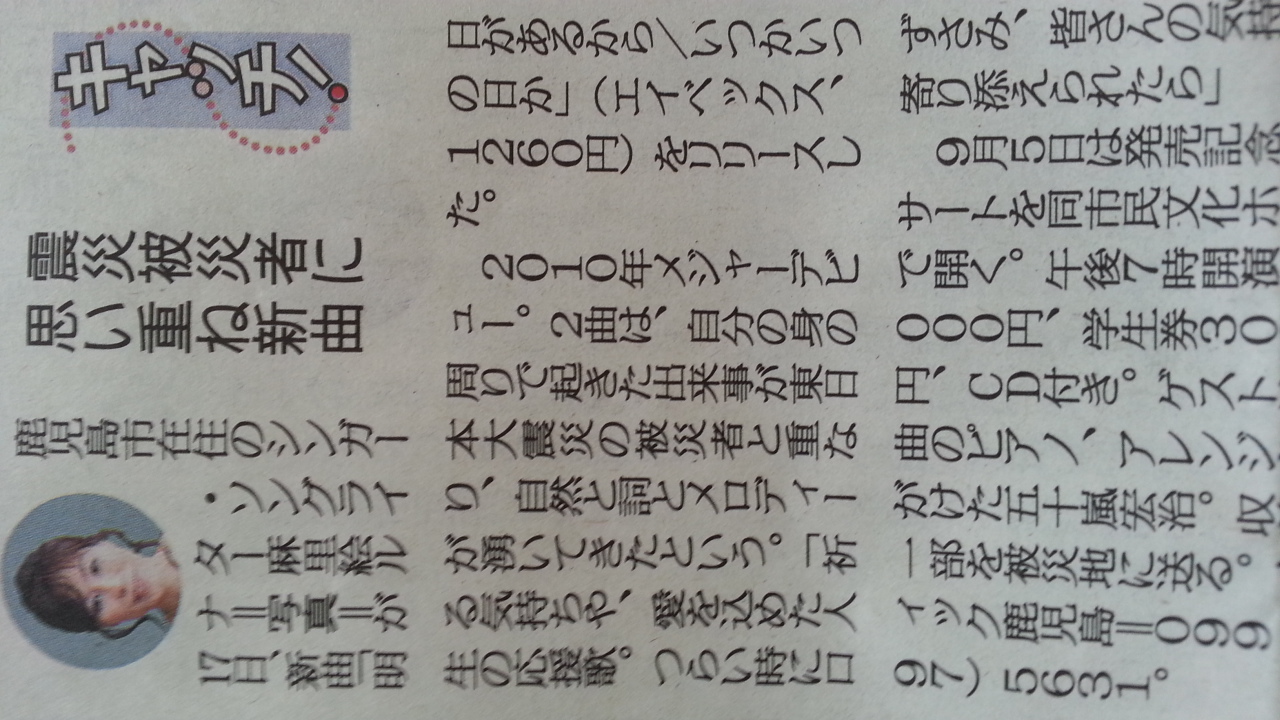 キャッチ!
震災被災者に
思い重ね新曲
鹿児島市在住のシンガー
・ソングライ
ター麻里絵ル
ナ＝写真＝が
17日、新曲「明
日があるから/いつかいつ
の日か」（エイベックス、
1260円）をリリースし
た。
2010年メジャーデビ
ュー。2曲は、自分の身の
周りで起きた出来事が東日
本大震災の被災者と重な
り、自然と詞とメロディー
が湧いてきたという。「祈
る気持ちや、愛を込めた人
生の応援歌。つらい時に口
ずさみ、皆さんの気持
寄り添えられたら」
9月5日は発売記念
サートを同市民文化ホ
で開く。午後7時開演
000円、学生券30
円、CD付き。ゲスト
曲のピアノ、アレンジ
がけた五十嵐宏治。収
一部を被災地に送る。
イック鹿児島＝099
97）5631。